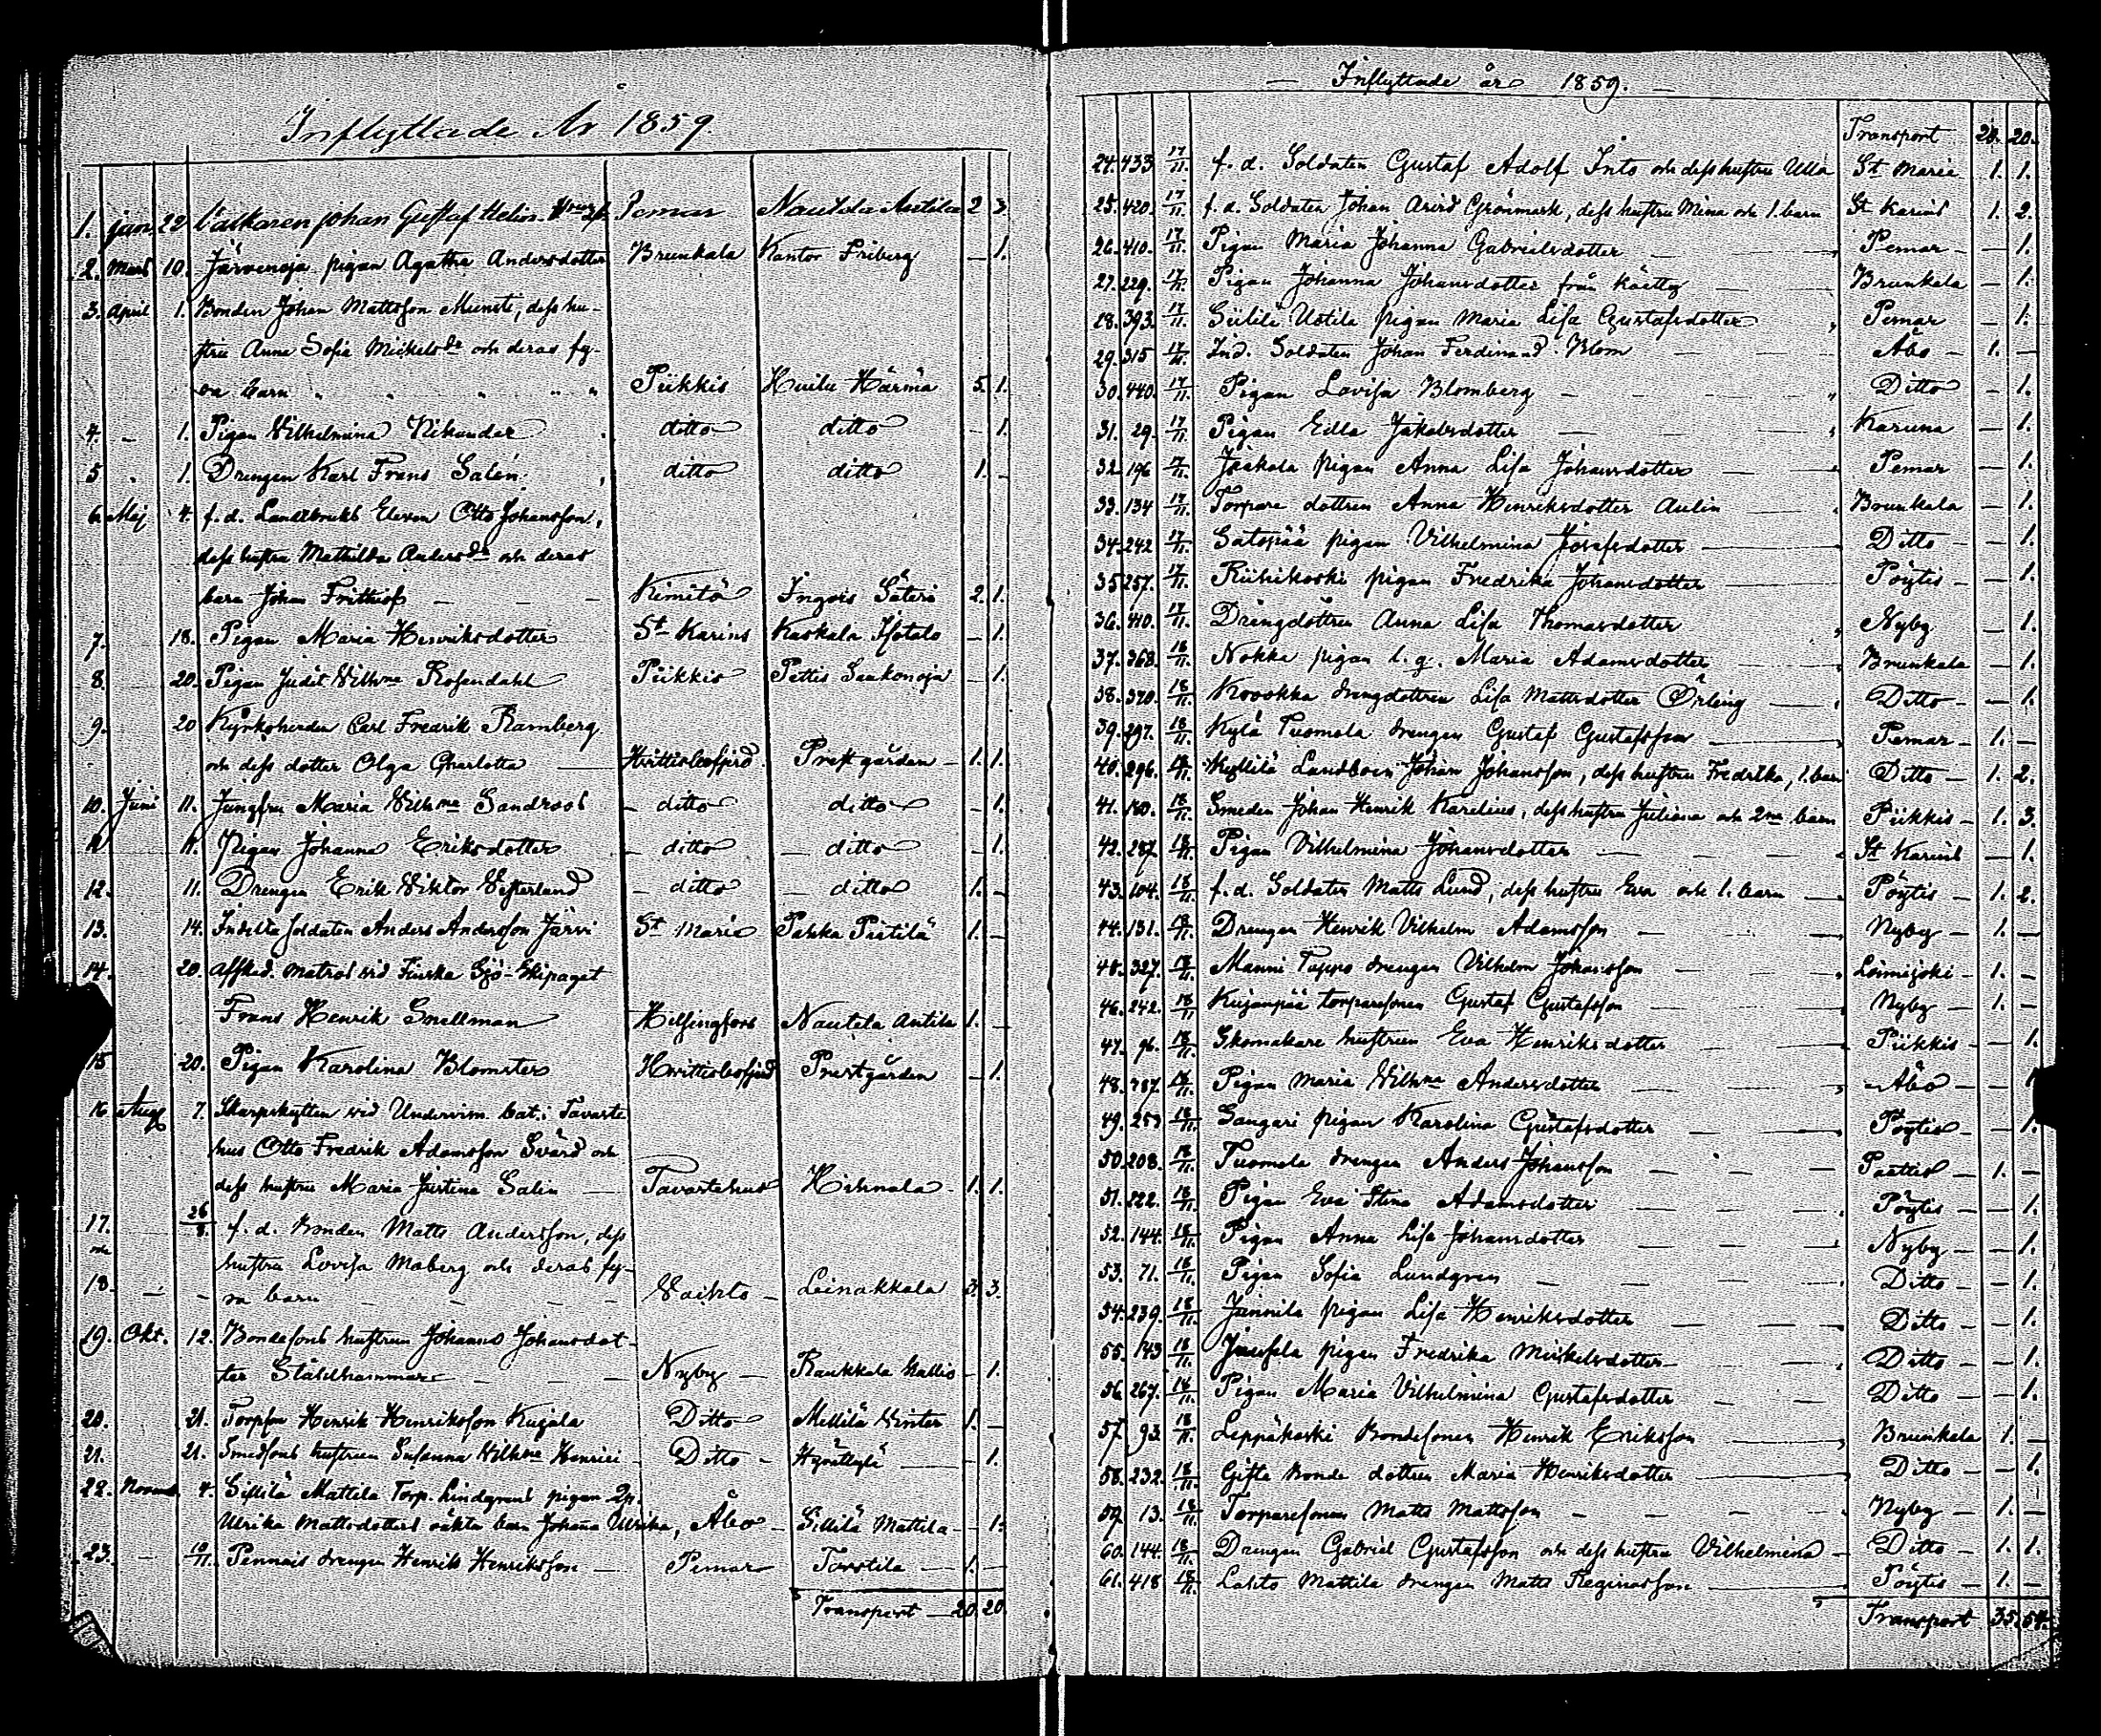 Inflyttade År 1859.
1. jan. 22 Valkaren johan Gustaf Helin Pemar Nautila Antila 2 3.
2. Mars 10. Järvenoja pigan Agatha Andersdotter Brunkala Kantor Friberg — 1.
3. April 1. Bonden Johan Mattsson Munsti, dess hu-
stru Anna Sofia Mickelsdr och deras fy-
ra barn Piikkis Huilu Härmä 5. 1.
4. — 1. Pigan Wilhelmina Nikander ditto ditto — 1.
5 1. Drengen Karl Frans Salén ditto ditto 1. —
6. Maj 4. f.d. Landtbruks Eleven Otto Johansson,
dess hustru Mathilda Andersdr och deras
barn Johan Frithiof — Kimito Ingois Säteri 2. 1.
7. 18. Pigan Maria Henriksdotter St Karins Kaskala Isotalo — 1.
8. 20. Pigan Judit Wilhma Rosendahl Piikkis Pettis Saukonoja — 1.
9. 20 Kyrkoherden Carl Fredrik Bamberg
och dess dotter Olga Charlotta — Hvittisbofjerd Prestgården — 1. 1.
10. Juni 11. Jungfru Maria Wilhma Sandroos — ditto ditto — 1.
11. 11. Pigan Johanna Eriksdotter — ditto — ditto — 1.
12. 11. Drengen Erik Wiktor Westerlund — ditto — ditto 1. —
13. 14. Indelta soldaten Anders Andersson Järvi St Marie Pahka Piitilä 1. —
14. 20. Afsked. matros vid Finska Sjö-Ekipaget
Frans Henrik Snellman Helsingfors Nautela Antila 1. —
15 20. Pigan Karolina Blomster Hvittisbofjerd Prestgården — 1.
16 Aug 7. Skarpskytten vid Undervisn. bat. i Tavaste
hus Otto Fredrik Adamsson Svärd och
dess hustru Maria Justina Salin — Tavastehus Hihnala 1. 1.
17. 26/8. f.d. bonden Matts Andersson, dess
och hustru Lovisa Moberg och deras fy-
18. — ra barn — Vaihto — Leinakkala 3. 3.
19. Okt. 12. Bondesons hustrun Johanna Johansdot-
ter Stålhammar — Nyby — Raukkala Mattis — 1.
20. 21. Torpson Henrik Henriksson Kujala Ditto Mellilä Winter 1. —
21. 21. Smedsons hustrun Susanna Wilhma Henrici — Ditto — — 1.
22. Novemb. 4. Sillilä Mattila Torp. Lindgrens pigan
Ulrika Mattsdotters oäkta barn Johanna Ulrika, Åbo — Sillilä Mattila — 1.
23. — 10/11. Pennais drengen Henrik Henriksson — Pemar Torstila — 1. —
Transport — 20. 20.
— Inflyttade år 1859. —
Transport 20. 20.
24. 433. 17/11. f.d. Soldaten Gustaf Adolf Into och dess hustru Ulla St Marie 1. 1.
25. 420. 17/11. f.d. Soldaten Johan Arvid Grönmark, dess hustru Mina och 1. barn St Karins 1. 2.
26. 410. 17/11. Pigan Maria Johanna Gabrielsdotter — Pemar — 1.
27. 229. 17/11. Pigan Johanna Johansdotter från Kärtty — Brunkala — 1.
28. 393. 17/11. Siililä Uotila pigan Maria Lisa Gustafsdotter Pemar — 1.
29. 315 17/11. Ind. Soldaten Johan Ferdinand Blom — Åbo — 1. —
30. 440. 17/11. Pigan Lovisa Blomberg — Ditto — 1.
31. 29. 17/11. Pigan Eilla Jakobsdotter — Karuna — 1.
32. 196 17/11. Jaakola pigan Anna Lisa Johansdotter — Pemar — 1.
33. 134 17/11. Torpare dottren Anna Henriksdotter Aulin — Brunkala — 1.
34. 242 17/11. Satopää pigan Vilhelmina Josefsdotter — Ditto — 1.
35 257. 17/11. Riihikoski pigan Fredrika Johansdotter — Pöytis — 1.
36. 440. 17/11. Drängdottren Anna Lisa Thomasdotter Nyby — 1.
37. 368. 18/11. Nokka pigan l.g. Maria Adamsdotter — Brunkala — 1.
38. 370. 18/11. Kovokka drengdottren Lisa Mattsdotter Örling — Ditto — 1.
39. 297. 18/11. Kylä Tuomola drengen Gustaf Gustafsson — Pemar — 1. —
40. 296. 18/11. Kyllilä Landboen Johan Johansson, dess hustru Fredrika, 1. barn Ditto — 1. 2.
41. 180. 18/11. Smeden Johan Henrik Karelius, dess hustru Juliana och 2ne barn Piikkis — 1. 3.
42. 287. 18/11. Pigan Vilhelmina Johansdotter — St Karins — 1.
43. 104. 18/11. f.d. Soldaten Matts Lund, dess hustru Eva och 1. barn — Pöytis — 1. 2.
44. 131. 18/11. Drengen Henrik Vilhelm Adamsson — Nyby — 1. —
45. 327. 18/11. Manni Tuppo drengen Vilhelm Johansson — Loimijoki — 1. —
46. 242. 18/11 Kujanpää torparesonen Gustaf Gustafsson — Nyby — 1. —
47. 96. 18/11. Skomakare hustrun Eva Henriksdotter — Piikkis — 1.
48. 787. 18/11. Pigan Maria Wilhma Andersdotter — Åbo — 1.
49. 257 18/11. Sangari pigan Karolina Gustafsdotter — Pöytis — 1.
50. 208. 18/11. Tuomola drengen Anders Johansson — Paattis — 1. —
51. 222. 18/11. Pigan Eva Stina Adamsdotter — Pöytis — 1.
52. 144. 18/11. Pigan Anna Lisa Johansdotter — Nyby — 1.
53. 71. 18/11. Pigan Sofia Lundgren — Ditto — 1.
54. 239. 18/11. Junnila pigan Lisa Henriksdotter — Ditto — 1.
55. 143 18/11. Juusela pigan Fredrika Mickelsdotter — Ditto — 1.
56 267. 18/11. Pigan Maria Vilhelmina Gustafsdotter — Ditto — 1.
57 93. 18/11. Leppäkoski bondesonen Henrik Eriksson — Brunkala 1. —
58. 232. 18/11. Gifta bonde dottren Maria Henriksdotter — Ditto — 1.
59 13. 18/11. Torparesonen Matts Mattsson — Nyby — 1. —
60. 144. 18/11. Drengen Gabriel Gustafsson och dess hustru Vilhelmina — Ditto — 1. 1.
61. 418 18/11. Lahto Mattila drengen Matts Reginasson — Pöytis — 1. —
Transport 35. 54.